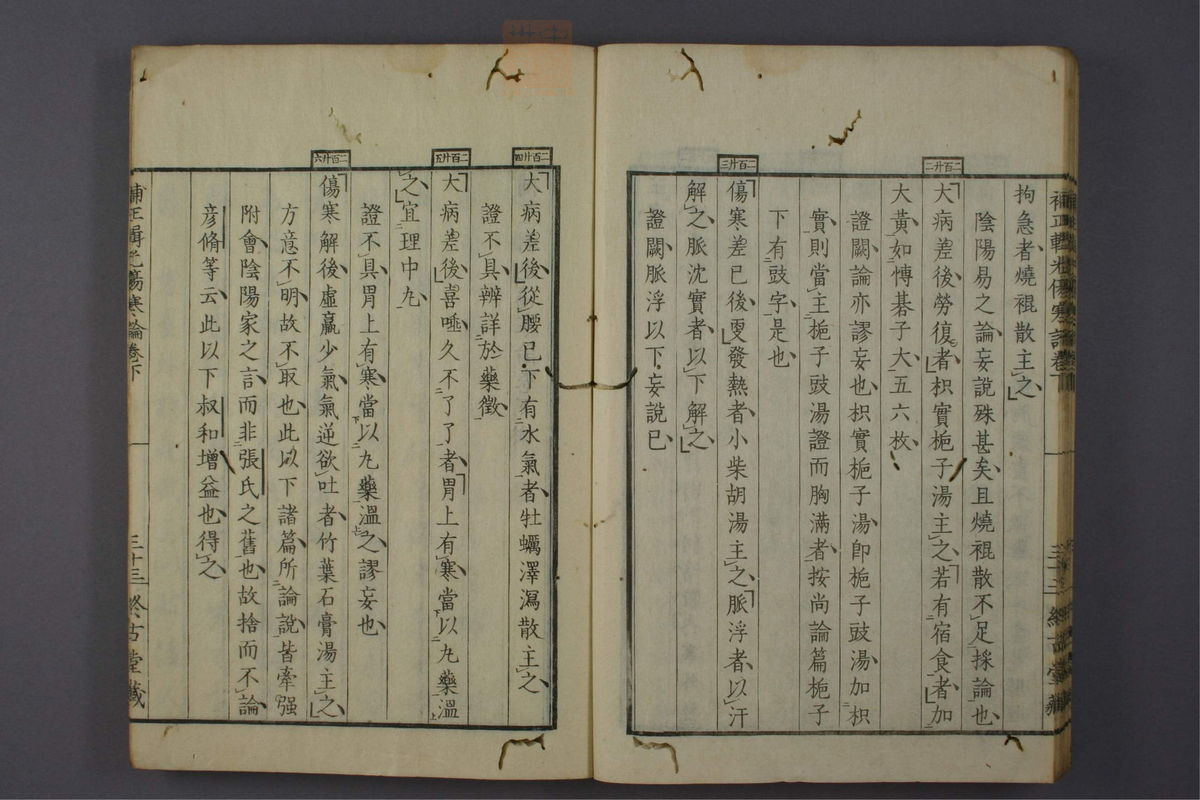 拘急者燒裩散主之
陰陽易之論妄說殊甚矣且燒裩散不足採論也
二百廿二
大病差後勞復者枳實梔子湯主之若有宿食者加
大黃如博碁子大五六枚
證闕論亦謬妄也枳實梔子湯卽梔子豉湯加枳
實則當主梔子豉湯證而胸滿者按尚論篇梔子
下有豉字是也
二百廿三
傷寒差已後更發熱者小柴胡湯主之脈浮者以汗
解之脈沈實者以下解之
證闕脈浮以下妄說已
二百廿四
大病差後從腰已下有水氣者牡蠣澤瀉散主之
證不具辨詳於藥徵
二百廿五
大病差後喜唾久不了了者胃上有寒當以丸藥溫
之宜理中丸
證不具胃上有寒當以丸藥溫之謬妄也
二百廿六
傷寒解後虛羸少氣氣逆欲吐者竹葉石膏湯主之
方意不明故不取也此以下諸篇所論說皆牽强
附會陰陽家之言而非張氏之舊也故捨而不論
彥脩等云此以下叔和增益也得之
補正輯光傷寒論卷下
三十三
終古堂藏